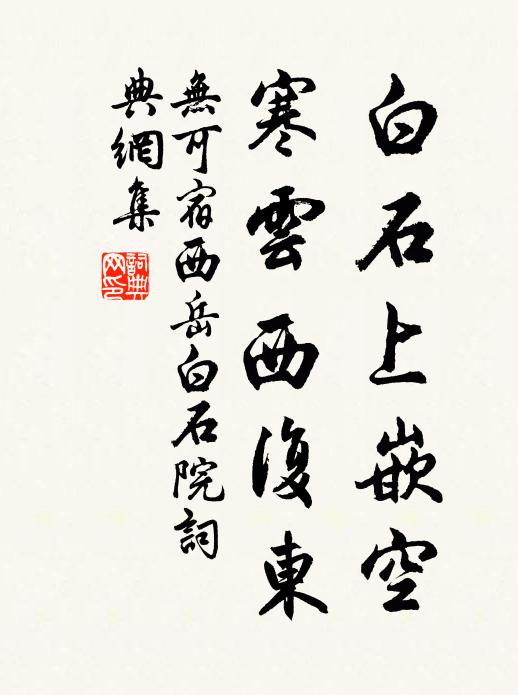 白石上嵌空
寒雲西復東
無可宿西岳白石院詞
典網集
詞典網印